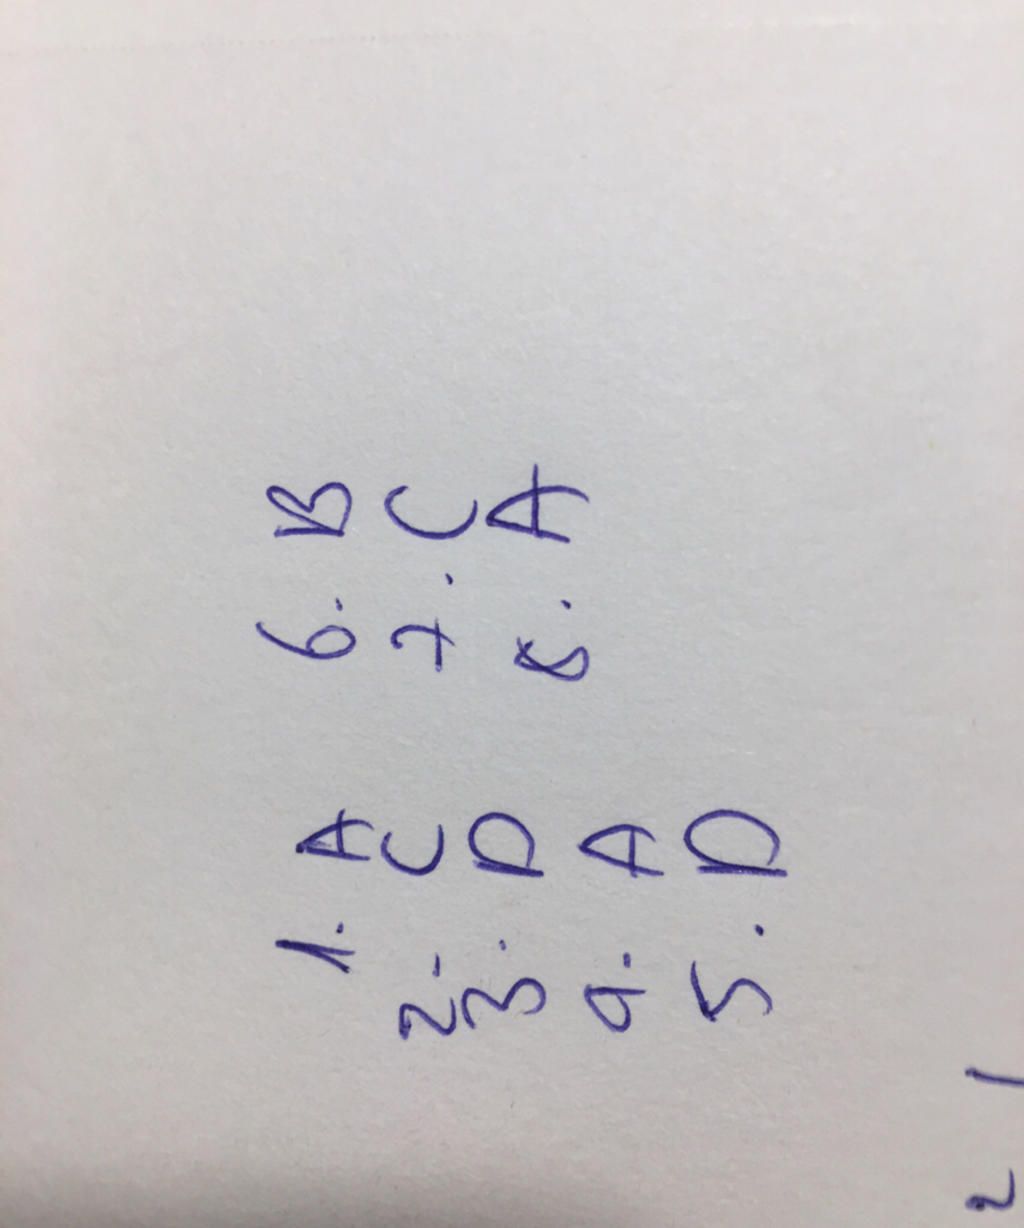 1. A
2. C
3. D
4. A
5. D
6. B
7. C
8. A